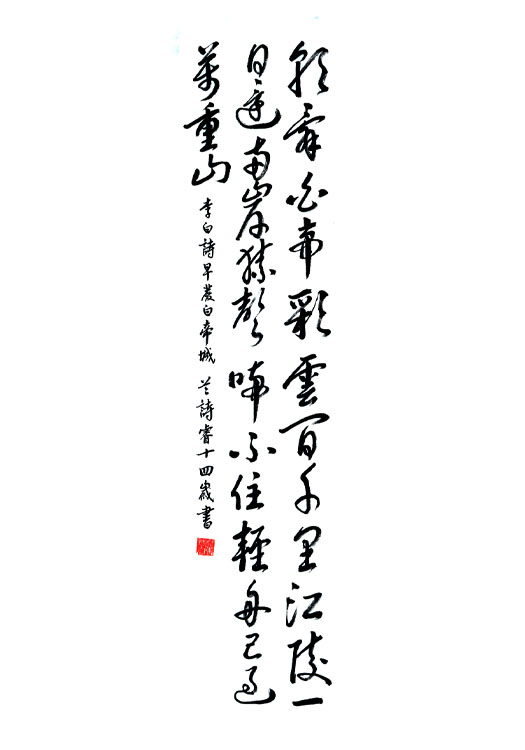 朝辭白帝彩雲間千里江陵一
日還兩岸猿聲啼不住輕舟已過
萬重山 李白詩早發白帝城 兰詩睿十四歲書